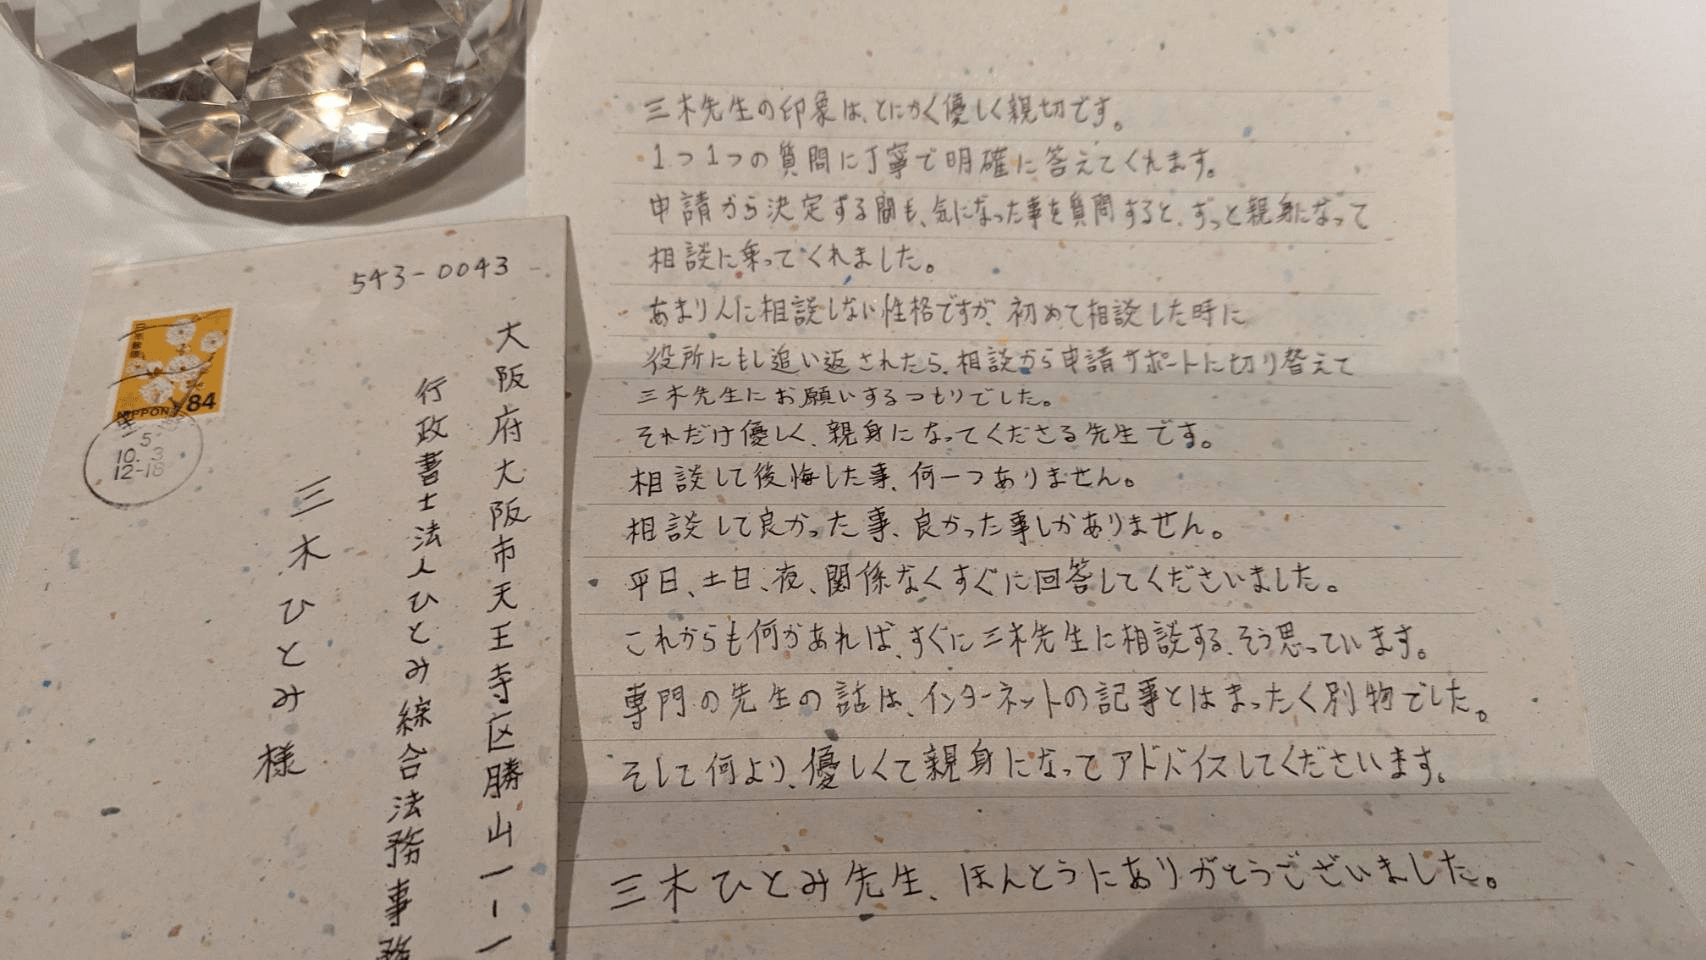 543-0043
大阪府大阪市天王寺区勝山一-一
行政書士法人ひとみ綜合法務事務
三木ひとみ様
日本郵便
NIPPON 84
5.
10.3
12-18
三木先生の印象は、とにかく優しく親切です。
1つ1つの質問に丁寧で明確に答えてくれます。
申請から決定する間も、気になった事を質問すると、ずっと親身になって
相談に乗ってくれました。
あまり人に相談しない性格ですが、初めて相談した時に
役所にもし追い返されたら、相談から申請サポートに切り替えて
三木先生にお願いするつもりでした。
それだけ優しく、親身になってくださる先生です。
相談して後悔した事、何一つありません。
相談して良かった事、良かった事しかありません。
平日、土日、夜、関係なくすぐに回答してくださいました。
これからも何かあれば、すぐに三木先生に相談する、そう思っています。
専門の先生の話は、インターネットの記事とはまったく別物でした。
そして何より、優しくて親身になってアドバイスしてくださいます。
三木ひとみ先生、ほんとうにありがとうございました。